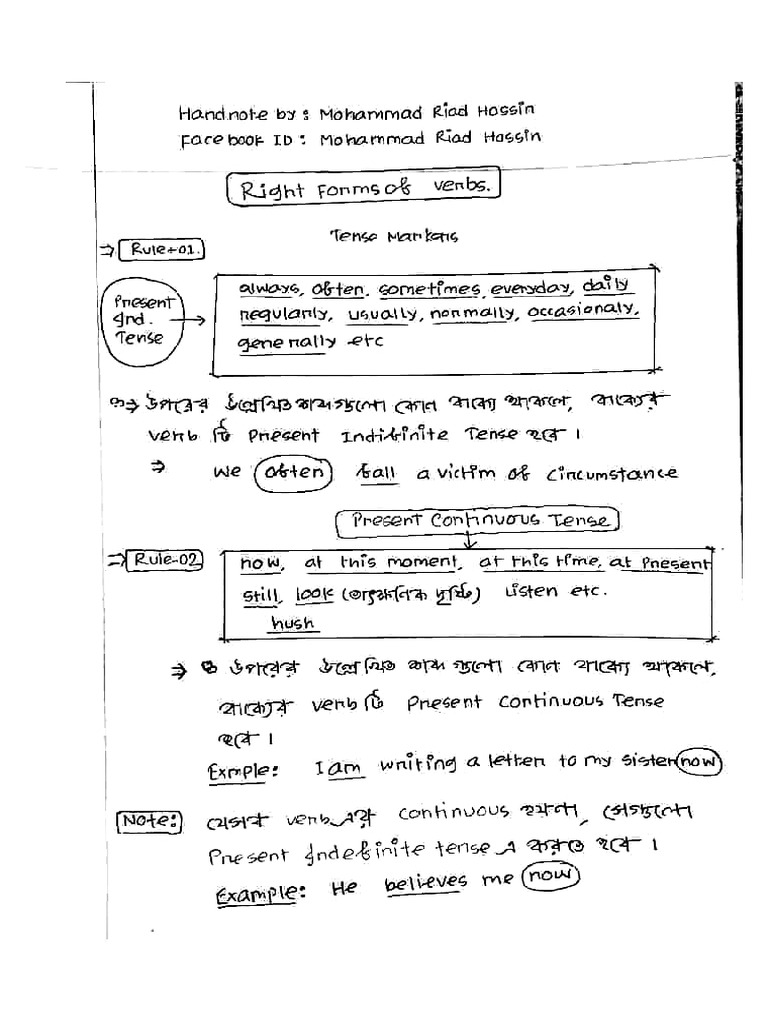 Handnote by : Mohammad Riad Hossin
Facebook ID : Mohammad Riad Hossin
Right Forms of verbs.
Tense Markers
⇒ Rule-01.
Present Ind. Tense →
always, often, sometimes, everyday, daily
regularly, usually, normally, occasionaly,
generally etc
⇒ উপরের উল্লেখিত শব্দ গুলো কোন বাক্যে থাকলে, বাক্যের
verb টি Present Indifinite Tense হবে।
⇒ We often fall a victim of circumstance
Present Continuous Tense
⇒ Rule-02
now, at this moment, at this time, at Present
still, look (তাৎক্ষনিক দৃষ্টি) Listen etc.
hush
⇒ উপরের উল্লেখিত শব্দ গুলো কোন বাক্যে থাকলে,
বাক্যের verb টি Present Continuous Tense
হবে।
Exmple: I am writing a letter to my sister now
Note: যেসব verb এর continuous হয়না, সেগুলো
Present Indefinite tense এ করতে হবে।
Example: He believes me now